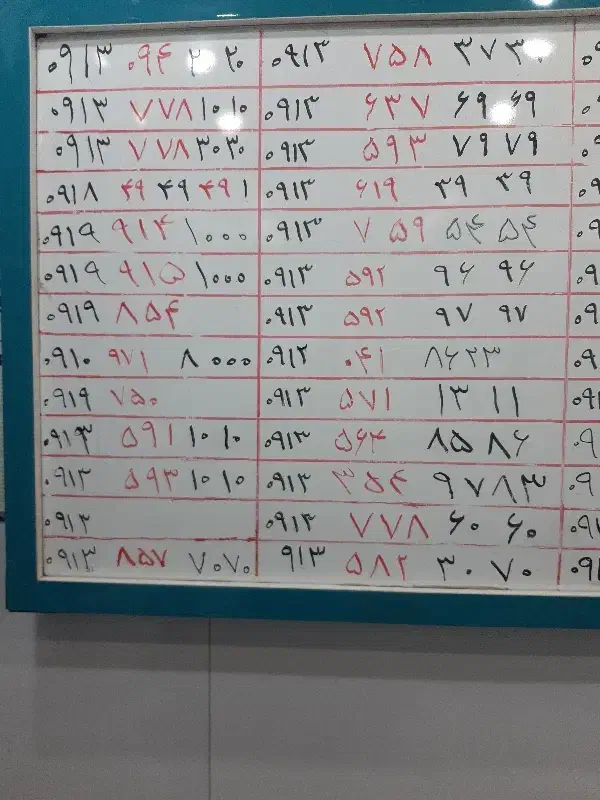 ۰۹۱۳ ۰۹۴ ۲۰ ۲۰ ۰۹۱۳ ۷۵۸ ۳۷۳۰
۰۹۱۳ ۷۷۸ ۱۰۱۰ ۰۹۱۳ ۶۳۷ ۶۹ ۶۹
۰۹۱۳ ۷۷۸ ۳۰۳۰ ۰۹۱۳ ۵۹۳ ۷۹ ۷۹
۰۹۱۸ ۴۹ ۴۹ ۴۹ ۱ ۰۹۱۳ ۶۱۹ ۳۹ ۳۹
۰۹۱۹ ۹۱۴ ۱۰۰۰ ۰۹۱۳ ۷۵۹ ۵۴ ۵۴
۰۹۱۹ ۹۱۵ ۱۰۰۰ ۰۹۱۳ ۵۹۲ ۹۶ ۹۶
۰۹۱۹ ۸۵۴ ۰۹۱۳ ۵۹۲ ۹۷ ۹۷
۰۹۱۰ ۹۷۱ ۸۰۰۰ ۰۹۱۲ ۰۴۱ ۸۶۲۳
۰۹۱۹ ۷۵۰ ۰۹۱۳ ۵۷۱ ۱۳ ۱۱
۰۹۱۳ ۵۹۱ ۱۰۱۰ ۰۹۱۳ ۵۶۴ ۸۵ ۸۶
۰۹۱۳ ۵۹۳ ۱۰۱۰ ۰۹۱۳ ۳۵۴ ۹۷۸۳
۰۹۱۲ ۰۹۱۳ ۷۷۸ ۶۰ ۶۰
۰۹۱۳ ۸۵۷ ۷۰۷۰ ۹۱۳ ۵۸۲ ۳۰ ۷۰